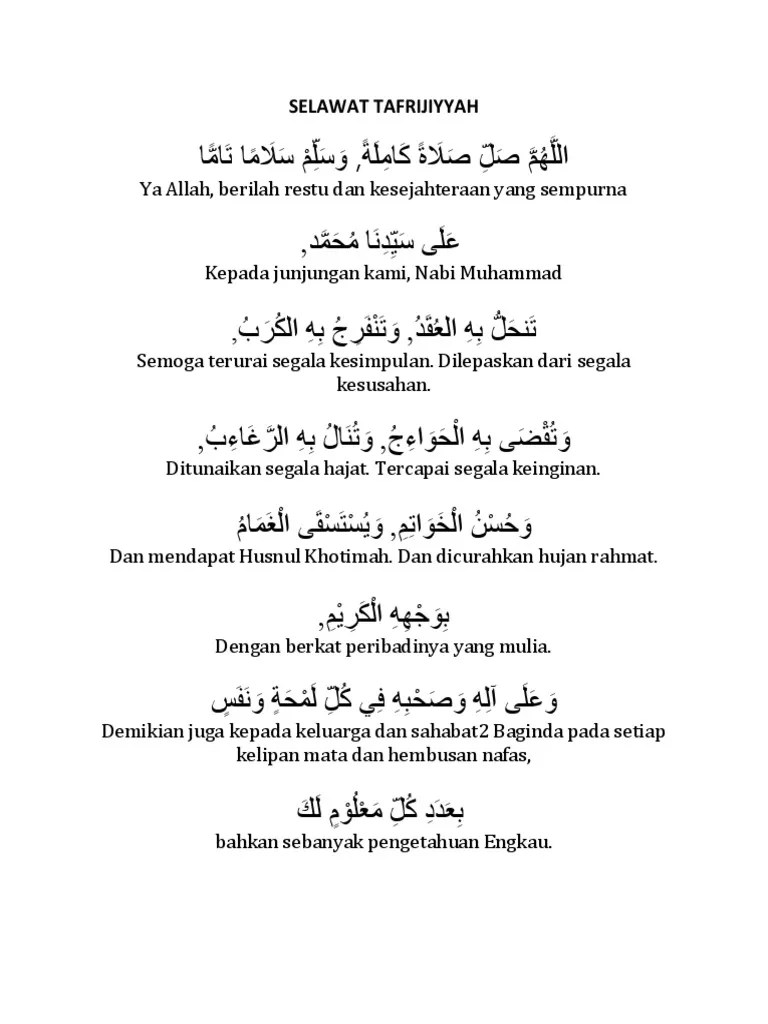 SELAWAT TAFRIJIYYAH
اللَّهُمَّ صَلِّ صَلَاةً كَامِلَةً, وَسَلِّمْ سَلَامًا تَامًّا
Ya Allah, berilah restu dan kesejahteraan yang sempurna
عَلَى سَيِّدِنَا مُحَمَّد,
Kepada junjungan kami, Nabi Muhammad
تَنحَلُّ بِهِ العُقَدُ, وَتَنْفَرِجُ بِهِ الكُرَبُ,
Semoga terurai segala kesimpulan. Dilepaskan dari segala
kesusahan.
وَتُقْضَى بِهِ الْحَوَاءِجُ, وَتُنَالُ بِهِ الرَّغَاءِبُ,
Ditunaikan segala hajat. Tercapai segala keinginan.
وَحُسْنُ الْخَوَاتِمِ, وَيُسْتَسْقَى الْغَمَامُ
Dan mendapat Husnul Khotimah. Dan dicurahkan hujan rahmat.
بِوَجْهِهِ الْكَرِيْمِ,
Dengan berkat peribadinya yang mulia.
وَعَلَى آلِهِ وَصَحْبِهِ فِي كُلِّ لَمْحَةٍ وَنَفَسٍ
Demikian juga kepada keluarga dan sahabat2 Baginda pada setiap
kelipan mata dan hembusan nafas,
بِعَدَدِ كُلِّ مَعْلُوْمٍ لَكَ
bahkan sebanyak pengetahuan Engkau.